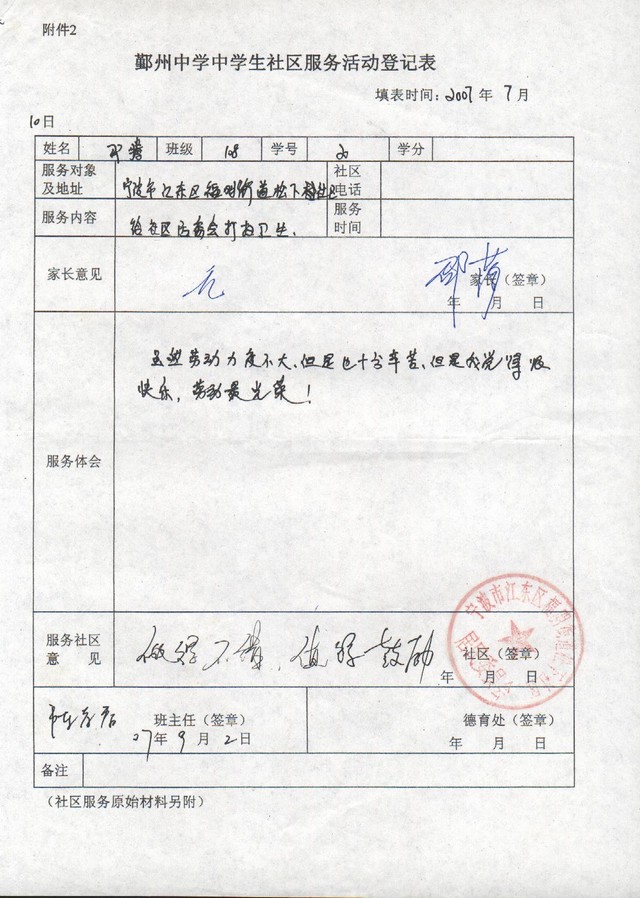 附件2
鄞州中学中学生社区服务活动登记表
填表时间：2007年7月
10日
姓名 班级 108 学号 学分
服务对象及地址 宁波市江东区福明街道松下 社区电话
服务内容 给社区居委会打扫卫生. 服务时间
家长意见 无 家长（签章）
年 月 日
服务体会
虽然劳动力度不大,但是也十分辛苦,但是我觉得很
快乐,劳动最光荣!
服务社区意见 做得不错, 值得鼓励 社区（签章）
年 月 日
宁波市江东区
班主任（签章） 德育处（签章）
07年9月2日 年 月 日
备注
（社区服务原始材料另附）